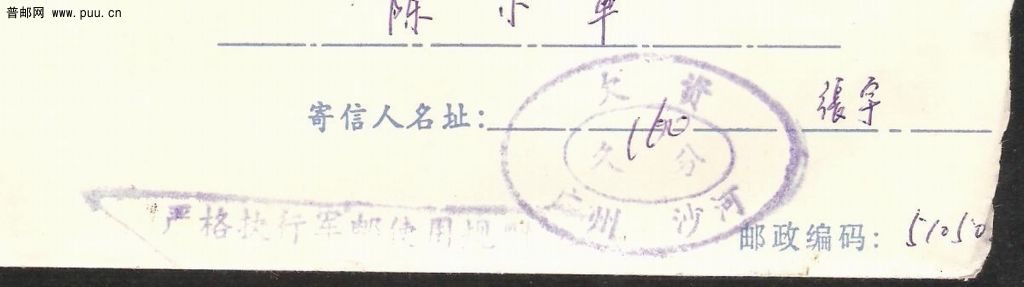 普邮网 www.puu.cn
陈小军
寄信人名址: 張宇
欠资
160
欠 分
广州 沙河
严格执行军邮使用规
邮政编码: 51050